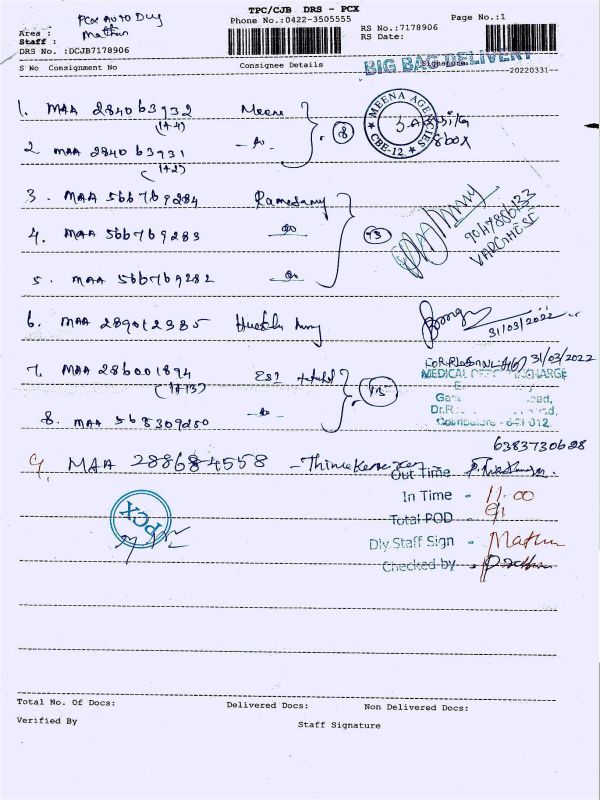 TPC/CJB DRS - PCX
Phone No.:0422-3505555
Page No.:1
PCX Auto Dly
Area :
Mathun
Staff :
RS No.:7178906
RS Date:
DRS No. :DCJB7178906
BIG BAG DELIVERY
S No Consignment No Consignee Details Signature
20220331
1. MAA 284063932 Meena
(1+4)
8
MEENA AGENCIES
CBE-12
8 box
2. MAA 284063931 - do -
(1+2)
3. MAA 566769284 Ramasamy
4. MAA 566769283 do
9047886133
VARGHESE
5. MAA 566769282 do
6. MAA 289012385
31/03/2022
31/03/2022
7. MAA 286001894 ESI
(1+13)
15
MEDICAL
Coimbatore - 641 012.
8. MAA 568309250 - do -
6383730628
9. MAA 288684558
Out Time
In Time - 11.00
PCX
Total POD - 9/1
Dly Staff Sign - Mathun
Checked by -
Total No. Of Docs: Delivered Docs: Non Delivered Docs:
Verified By
Staff Signature